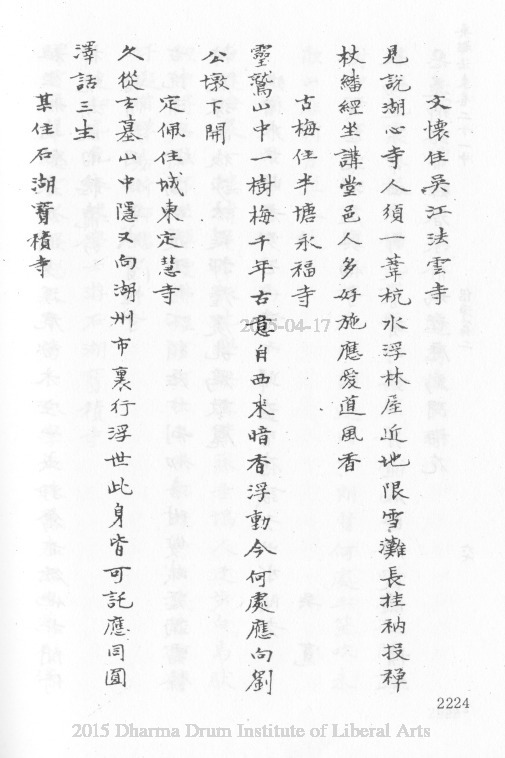 文懷住吳江法雲寺
見說湖心寺人須一葦杭水浮林屋近地限雪灘長挂衲投禪
杖繙經坐講堂邑人多好施應愛道風香
古梅住半塘永福寺
靈鷲山中一樹梅千年古意自西來暗香浮動今何處應向劉
公墩下開
定佩住城東定慧寺
久從玄墓山中隱又向湖州市裏行浮世此身皆可託應同圓
澤話三生
某住石湖寶積寺
2015-04-17
2224
2015 Dharma Drum Institute of Liberal Arts